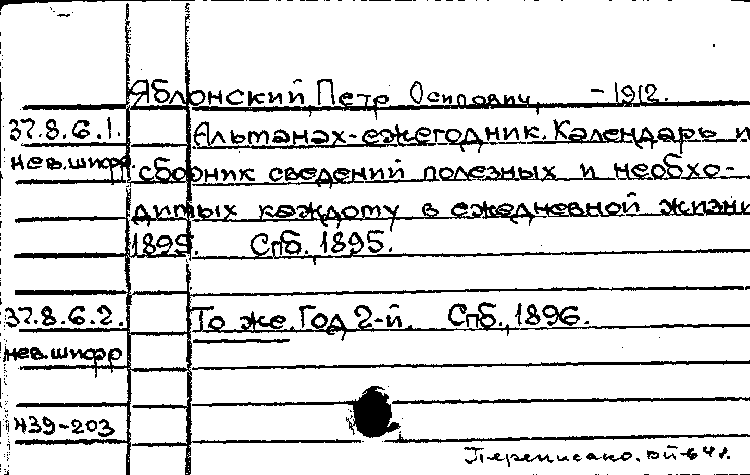 Яблонский, Петр Осипович, -1912.
37.8.6.1. Альманах-ежегодник. Календарь и
нев.шифр сборник сведений полезных и необхо-
димых каждому в ежедневной жизни
1895. Спб., 1895.
37.8.6.2. То же. Год 2-й. Спб., 1896.
нев.шифр
439-203
Переписано.